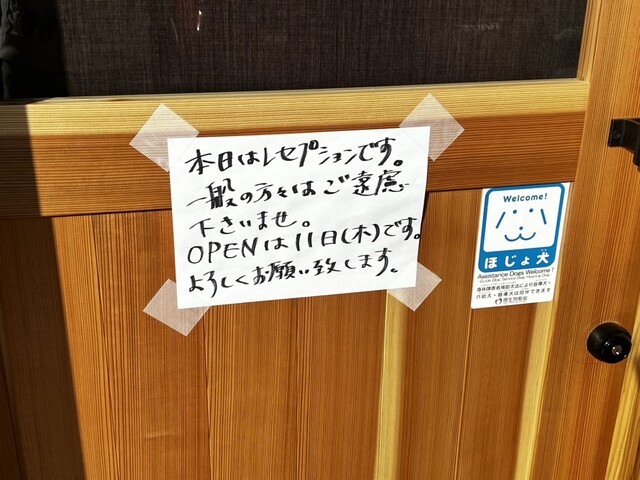 本日はレセプションです。
一般の方々はご遠慮
下さいませ。
OPENは11日(木)です。
よろしくお願い致します。
Welcome!
ほじょ犬
Assistance Dogs Welcome!
Guide Dog, Service Dog, Hearing Dog
身体障害者補助犬法により盲導犬・
介助犬・聴導犬は同伴できます
厚生労働省